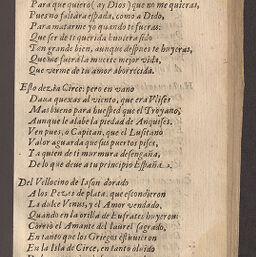 Para que quiero (ay Dios) que no me quieras,
Pues no faltara espada, como a Dido,
Para matarme yo quando te fueras:
Que ser de ti querida huuiera sido
Tan grande bien, aunque despues te huyeras,
Que me fuera la muerte mejor vida,
Que verme de tu amor aborrecida.
Esto dezia Circe: pero en vano
Daua quexas al viento, que era Vlises
Mas bueno para huesped que el Troyano,
Aunque le alabe la piedad de Anquises.
Ven pues, o Capitan, que el Lusitano
Valor aguarda que sus puertos pises,
Ya quien de ti murmura desengaña,
De lo que deue a tu principio España.
Del Vellocino de Iason dorado
A los Pezes de plata, que escondieron
La dulce Venus, y el Amor vendado,
Quando en la orilla de Eufrates huyeron:
Corriò el Amante del laurel sagrado,
En tanto que los Griegos estuuieron
En la Isla de Circe, en tanto oluido